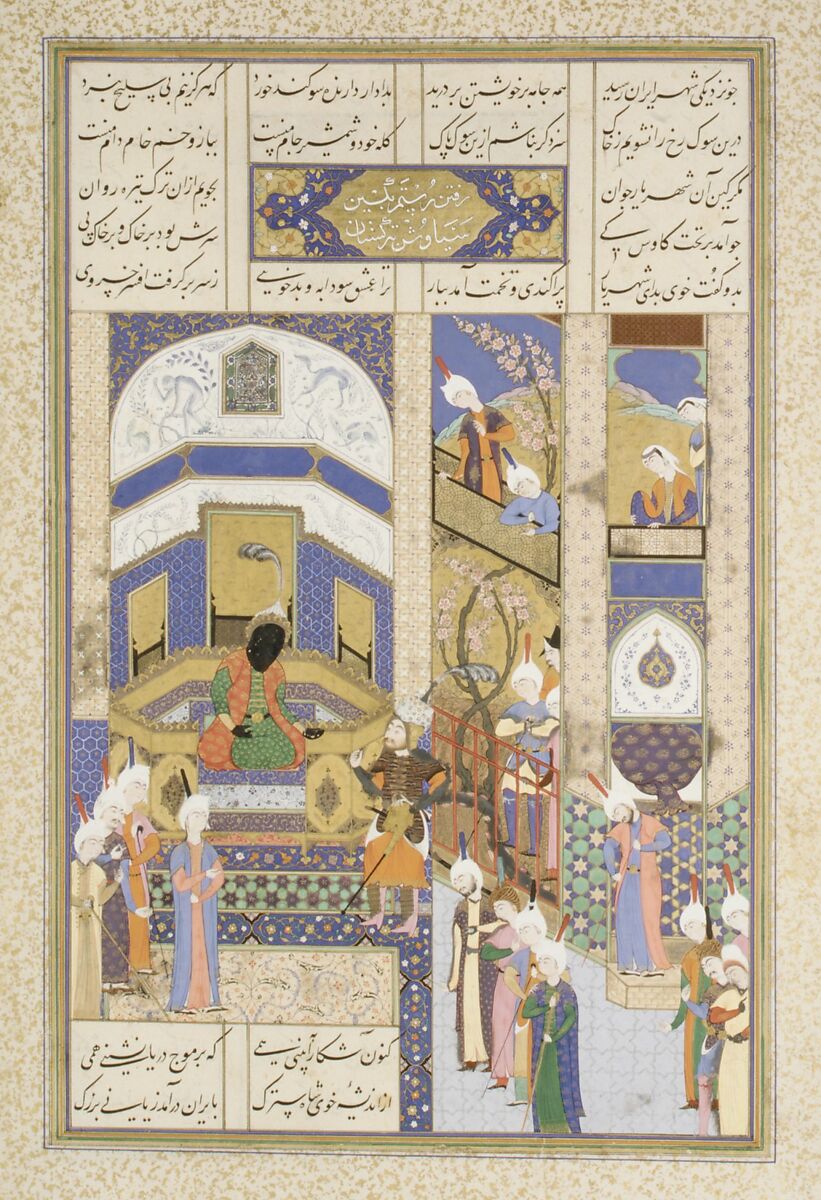 چو نزدیکی شهر ایران رسید همه جامه بر خویشتن بر درید
بدادار دارنده سوگند خورد که هرگز تنم بی سلیح نبرد
درین سوک رخ را نشویم ز خاک سزد گر بباشم ازین سوک پاک
کله خود و شمشیر جام منست ببازو خم خام دام منست
رفتن رستم بکین
سیاوش بترکستان
مگر کین آن شهریار جوان
بجویم ازان ترک تیره روان
چو آمد بر تخت کاوس کی
سرش بود بر خاک و بر خاک پی
بدو گفت خوی بد ای شهریار پراکندی و تخمت آمد ببار
ترا عشق سودابه و بدخویی ز سر بر گرفت افسر خسروی
کنون آشکارا ببینی همی که بر موج دریا نشینی همی
از اندیشهٔ خوی شاه سترک بایران درآمد زیانی بزرگ